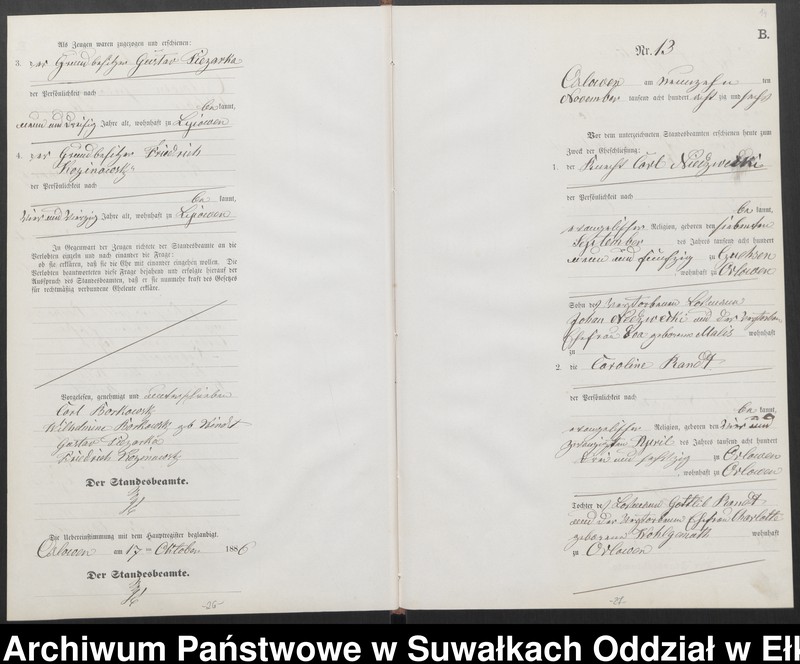 Als Zeugen waren zugezogen und erschienen:
3. der Grundbesitzer Gustav Piezarka
der Persönlichkeit nach
be kannt,
neun und dreißig Jahre alt, wohnhaft zu Lipowen
4. der Grundbesitzer Friedrich
Kozinowsky
der Persönlichkeit nach
be kannt,
vier und vierzig Jahre alt, wohnhaft zu Lipowen
In Gegenwart der Zeugen richtete der Standesbeamte an die
Verlobten einzeln und nach einander die Frage:
ob sie erklären, daß sie die Ehe mit einander eingehen wollen. Die
Verlobten beantworteten diese Frage bejahend und erfolgte hierauf der
Ausspruch des Standesbeamten, daß er sie nunmehr kraft des Gesetzes
für rechtmäßig verbundene Eheleute erkläre.
Vorgelesen, genehmigt und unterschrieben
Carl Borkowsky
Wilhelmine Borkowsky gb
Gustav Piezarka
Friedrich Kozinowsky
Der Standesbeamte.
Die Uebereinstimmung mit dem Hauptregister beglaubigt
Orlowen am 17 ten Oktober 1886
Der Standesbeamte.
-26-
B.
Nr. 13
Orlowen am neunzehn ten
November tausend acht hundert acht zig und sechs
Vor dem unterzeichneten Standesbeamten erschienen heute zum
Zweck der Eheschließung:
1. der Knecht Carl Niedzwetzki
der Persönlichkeit nach
be kannt,
evangelischer Religion, geboren den siebenten
September des Jahres tausend acht hundert
neun und fünfzig zu
, wohnhaft zu Orlowen
Sohn des verstorbenen Losmanns
Johan Niedzwetzki und der verstorbenen
Ehefrau Eva geborene wohnhaft
zu
2. die Caroline Randt
der Persönlichkeit nach
be kannt,
evangelischer Religion, geboren den vier und
zwanzigsten April des Jahres tausend acht hundert
drei und sechszig zu Orlowen
, wohnhaft zu Orlowen
Tochter des Losmanns Gottlieb Randt
und der verstorbenen Ehefrau Charlotte
geborene Wohlgemuth wohnhaft
zu Orlowen
-27-
Archiwum Państwowe w Suwałkach Oddział w Ełk